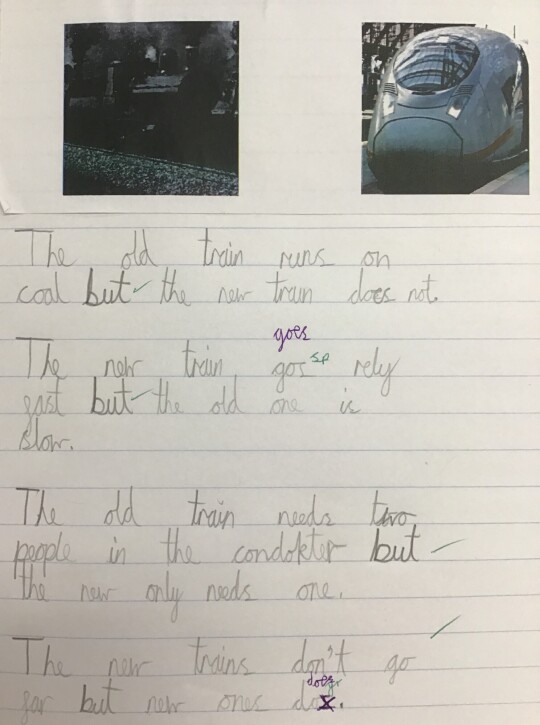 The old train runs on
coal but the new train does not.
goes
The new train gos sp rely
fast but the old one is
slow.
The old train needs two
people in the condokter but
the new only needs one.
The new trains don't go
does
far but new ones do.